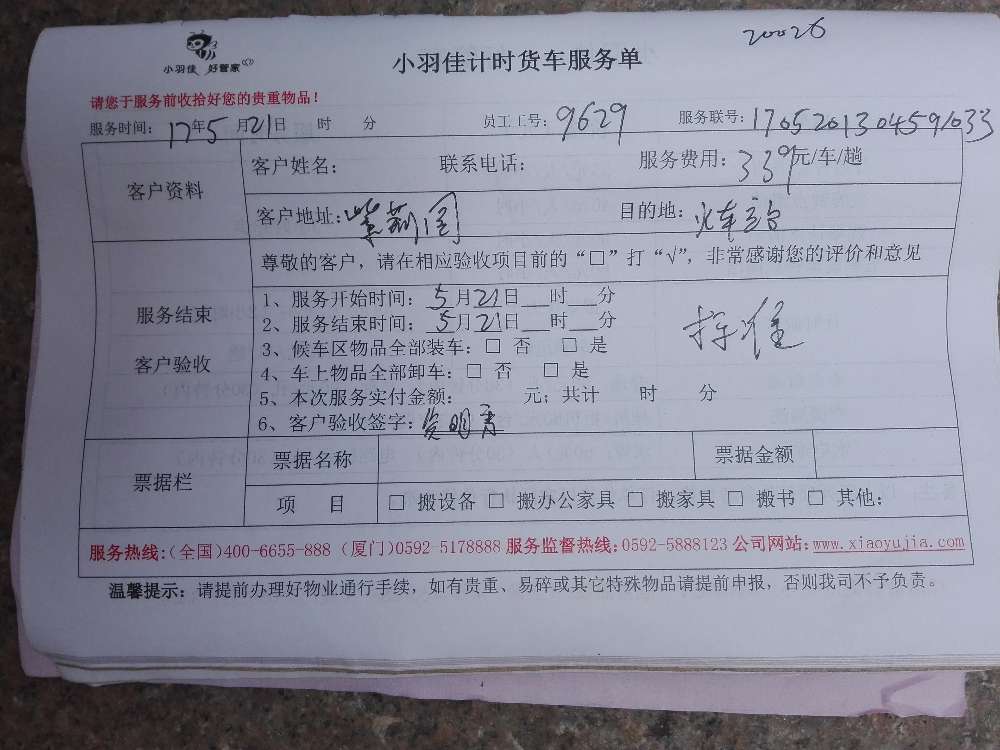 20026
小羽佳 好管家
小羽佳计时货车服务单
请您于服务前收拾好您的贵重物品！
服务时间： 17年5月21日 时 分 员工工号：9629 服务联号：1705201304591033
客户资料
客户姓名： 联系电话： 服务费用：339元/车/趟
客户地址：紫荆阁 目的地：火车站
尊敬的客户，请在相应验收项目前的“□”打“√”，非常感谢您的评价和意见
服务结束
客户验收
1、服务开始时间：5月21日__时__分
2、服务结束时间：5月21日__时__分
3、候车区物品全部装车：□ 否 □ 是
4、车上物品全部卸车：□ 否 □ 是
5、本次服务实付金额： 元；共计 时 分
6、客户验收签字：
票据栏
票据名称 票据金额
项 目 □ 搬设备 □ 搬办公家具 □ 搬家具 □ 搬书 □ 其他：
服务热线：(全国)400-6655-888 (厦门)0592-5178888 服务监督热线：0592-5888123 公司网站：www.xiaoyujia.com
温馨提示：请提前办理好物业通行手续，如有贵重、易碎或其它特殊物品请提前申报，否则我司不予负责。